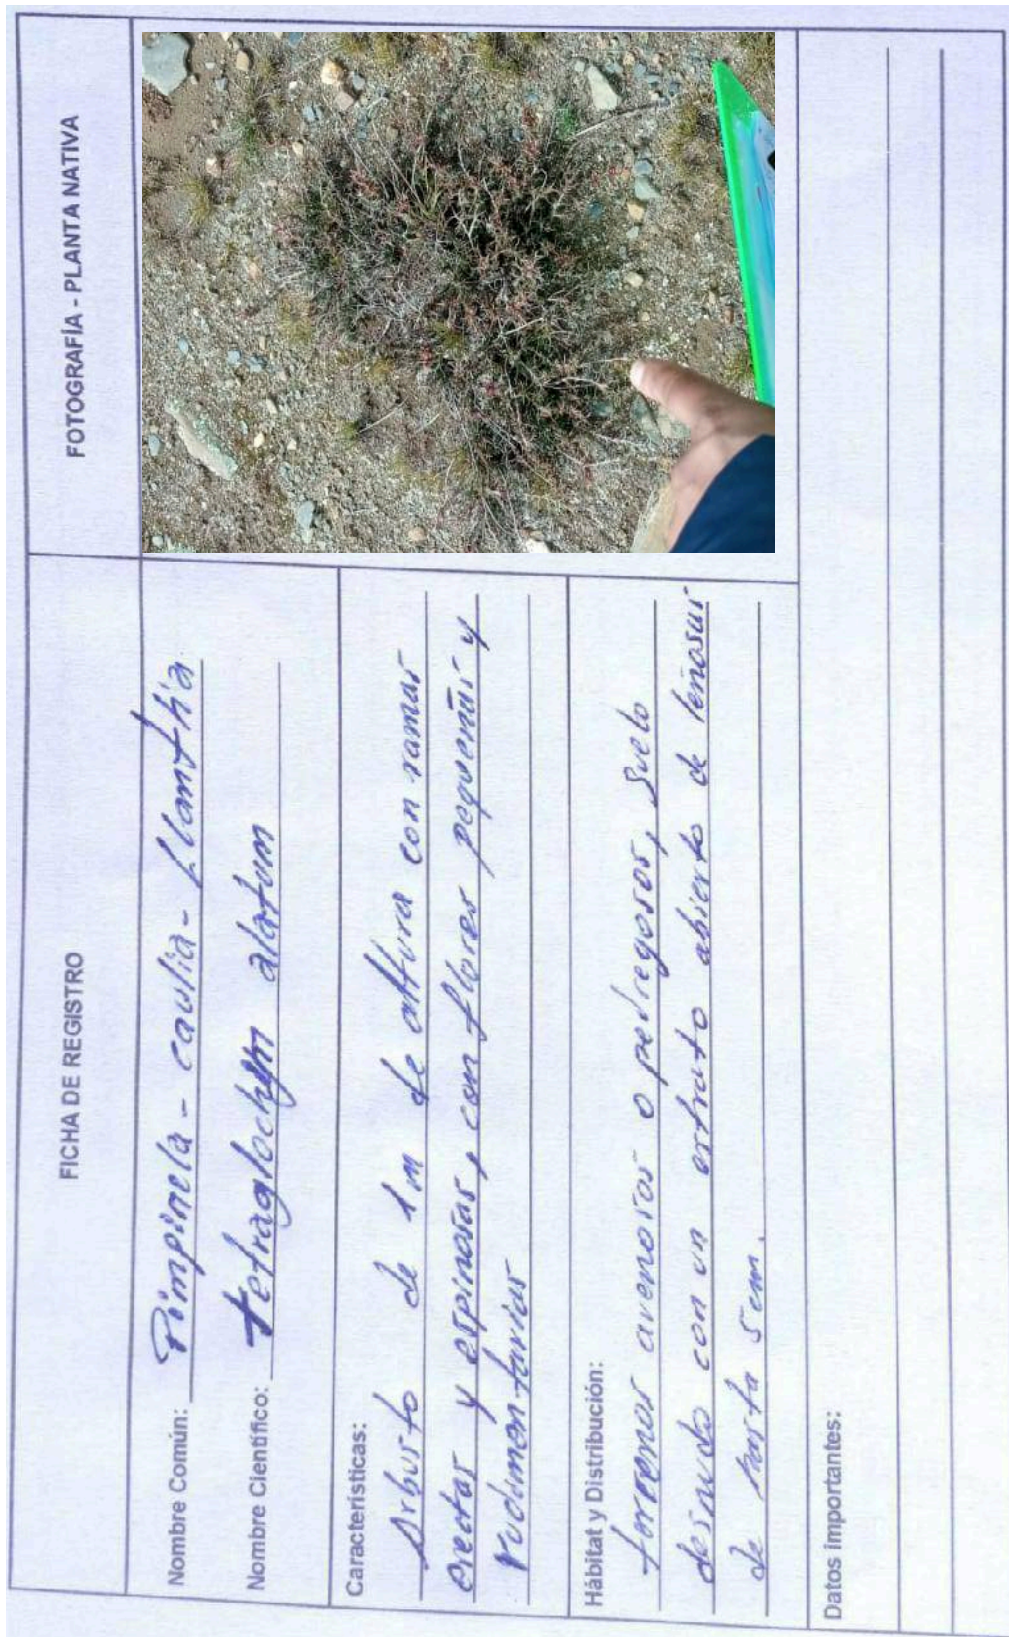 FICHA DE REGISTRO
FOTOGRAFÍA - PLANTA NATIVA
Nombre Común: Pimpinela - caulia - Llanthia
Nombre Científico: tetraglochym alatum
Características:
Arbusto de 1 m de altura con ramas
erectas y espinosas, con flores pequeñas y
rudimentarias
Hábitat y Distribución:
terrenos avenosos o pedregosos, suelo
desnudo con un estrato abierto de leñosas
de hasta 5 cm.
Datos importantes: